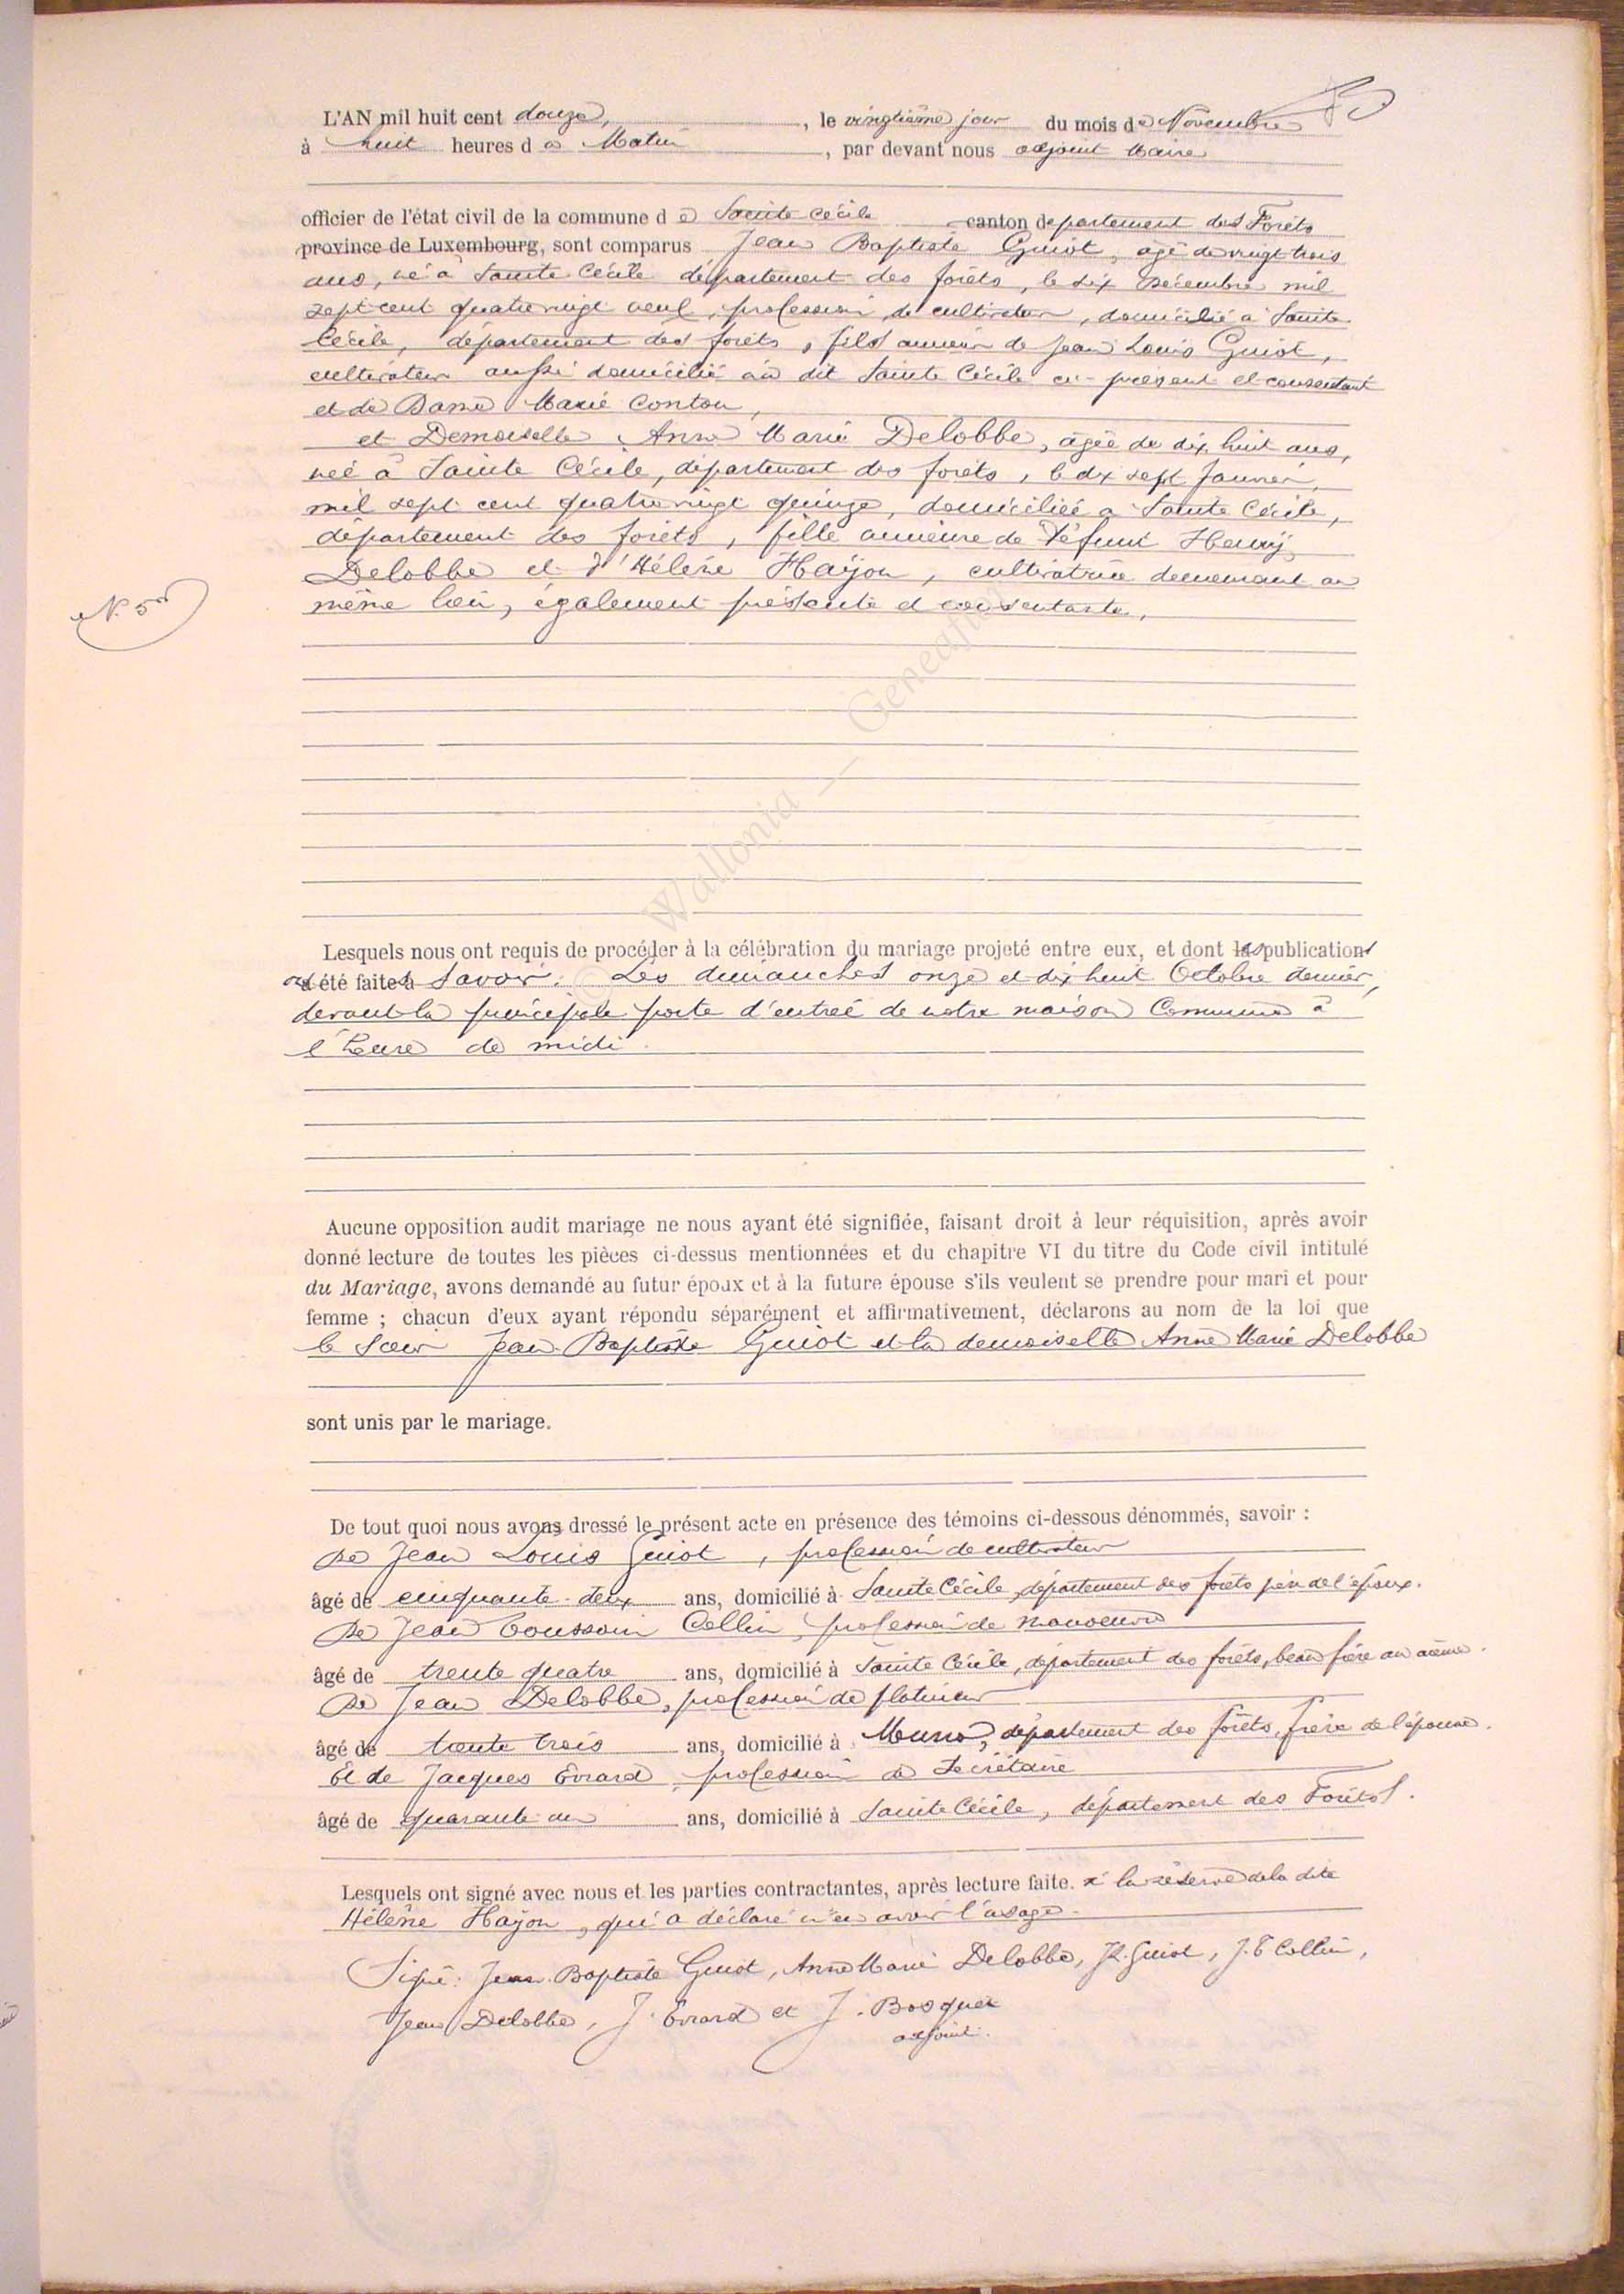 L'AN mil huit cent douze, , le vingtième jour du mois de Novembre
à huit heures de Matin , par devant nous adjoint Maire
officier de l'état civil de la commune de Sainte Cécile canton département des Forêts
province de Luxembourg, sont comparus Jean Baptiste Guiot, âgé de vingt trois
ans, né à Sainte Cécile département des forêts, le dix Décembre mil
sept cent quatre vingt neuf, profession de cultivateur, domicilié à Sainte
Cécile, département des forêts, fils de Jean Louis Guiot,
cultivateur aussi domicilié au dit Sainte Cécile ci-présent et consentant
et de Dame Marie Conton,
et Demoiselle Anne Marie Delobbe, âgée de dix huit ans,
née à Sainte Cécile, département des forêts, le dix sept Janvier,
mil sept cent quatre vingt quinze, domiciliée à Sainte Cécile,
département des forêts, fille de Défunt Henry
Delobbe et d'Hélène Hayon, cultivatrice demeurant au
N° 5
même lieu, également présente et consentante,
Lesquels nous ont requis de procéder à la célébration du mariage projeté entre eux, et dont les publications
ont été faites à Savoir: Les dimanches onze et dix huit Octobre dernier,
devant la principale porte d'entrée de notre maison Commune à
l'heure de midi.
Aucune opposition audit mariage ne nous ayant été signifiée, faisant droit à leur réquisition, après avoir
donné lecture de toutes les pièces ci-dessus mentionnées et du chapitre VI du titre du Code civil intitulé
du Mariage, avons demandé au futur époux et à la future épouse s'ils veulent se prendre pour mari et pour
femme ; chacun d'eux ayant répondu séparément et affirmativement, déclarons au nom de la loi que
le Sieur Jean Baptiste Guiot et la demoiselle Anne Marie Delobbe
sont unis par le mariage.
De tout quoi nous avons dressé le présent acte en présence des témoins ci-dessous dénommés, savoir :
De Jean Louis Guiot, profession de cultivateur
âgé de cinquante-deux ans, domicilié à Sainte Cécile, département des forêts père de l'époux.
De Jean Toussain Collin, profession de manoeuvre
âgé de trente quatre ans, domicilié à Sainte Cécile, département des forêts, beau frère au même.
De Jean Delobbe, profession de platineur
âgé de trente trois ans, domicilié à Muno, département des forêts, frère de l'épouse.
Et de Jacques Evrard, profession de Secrétaire
âgé de quarante un ans, domicilié à Sainte Cécile, département des Forêts.
Lesquels ont signé avec nous et les parties contractantes, après lecture faite. à la réserve de la dite
Hélène Hayon, qui a déclaré n'en avoir l'usage.
Signé: Jean Baptiste Guiot, Anne Marie Delobbe, JL. Guiot, J. T Collin,
Jean Delobbe, J. Evrard et J. Bosquet
adjoint.
© Wallonia — Geneafrance